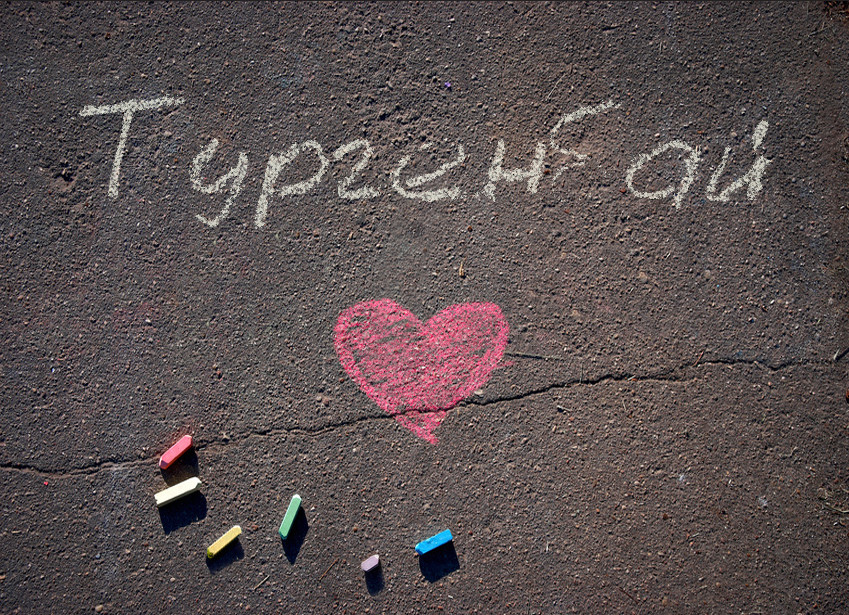 Тургенбай